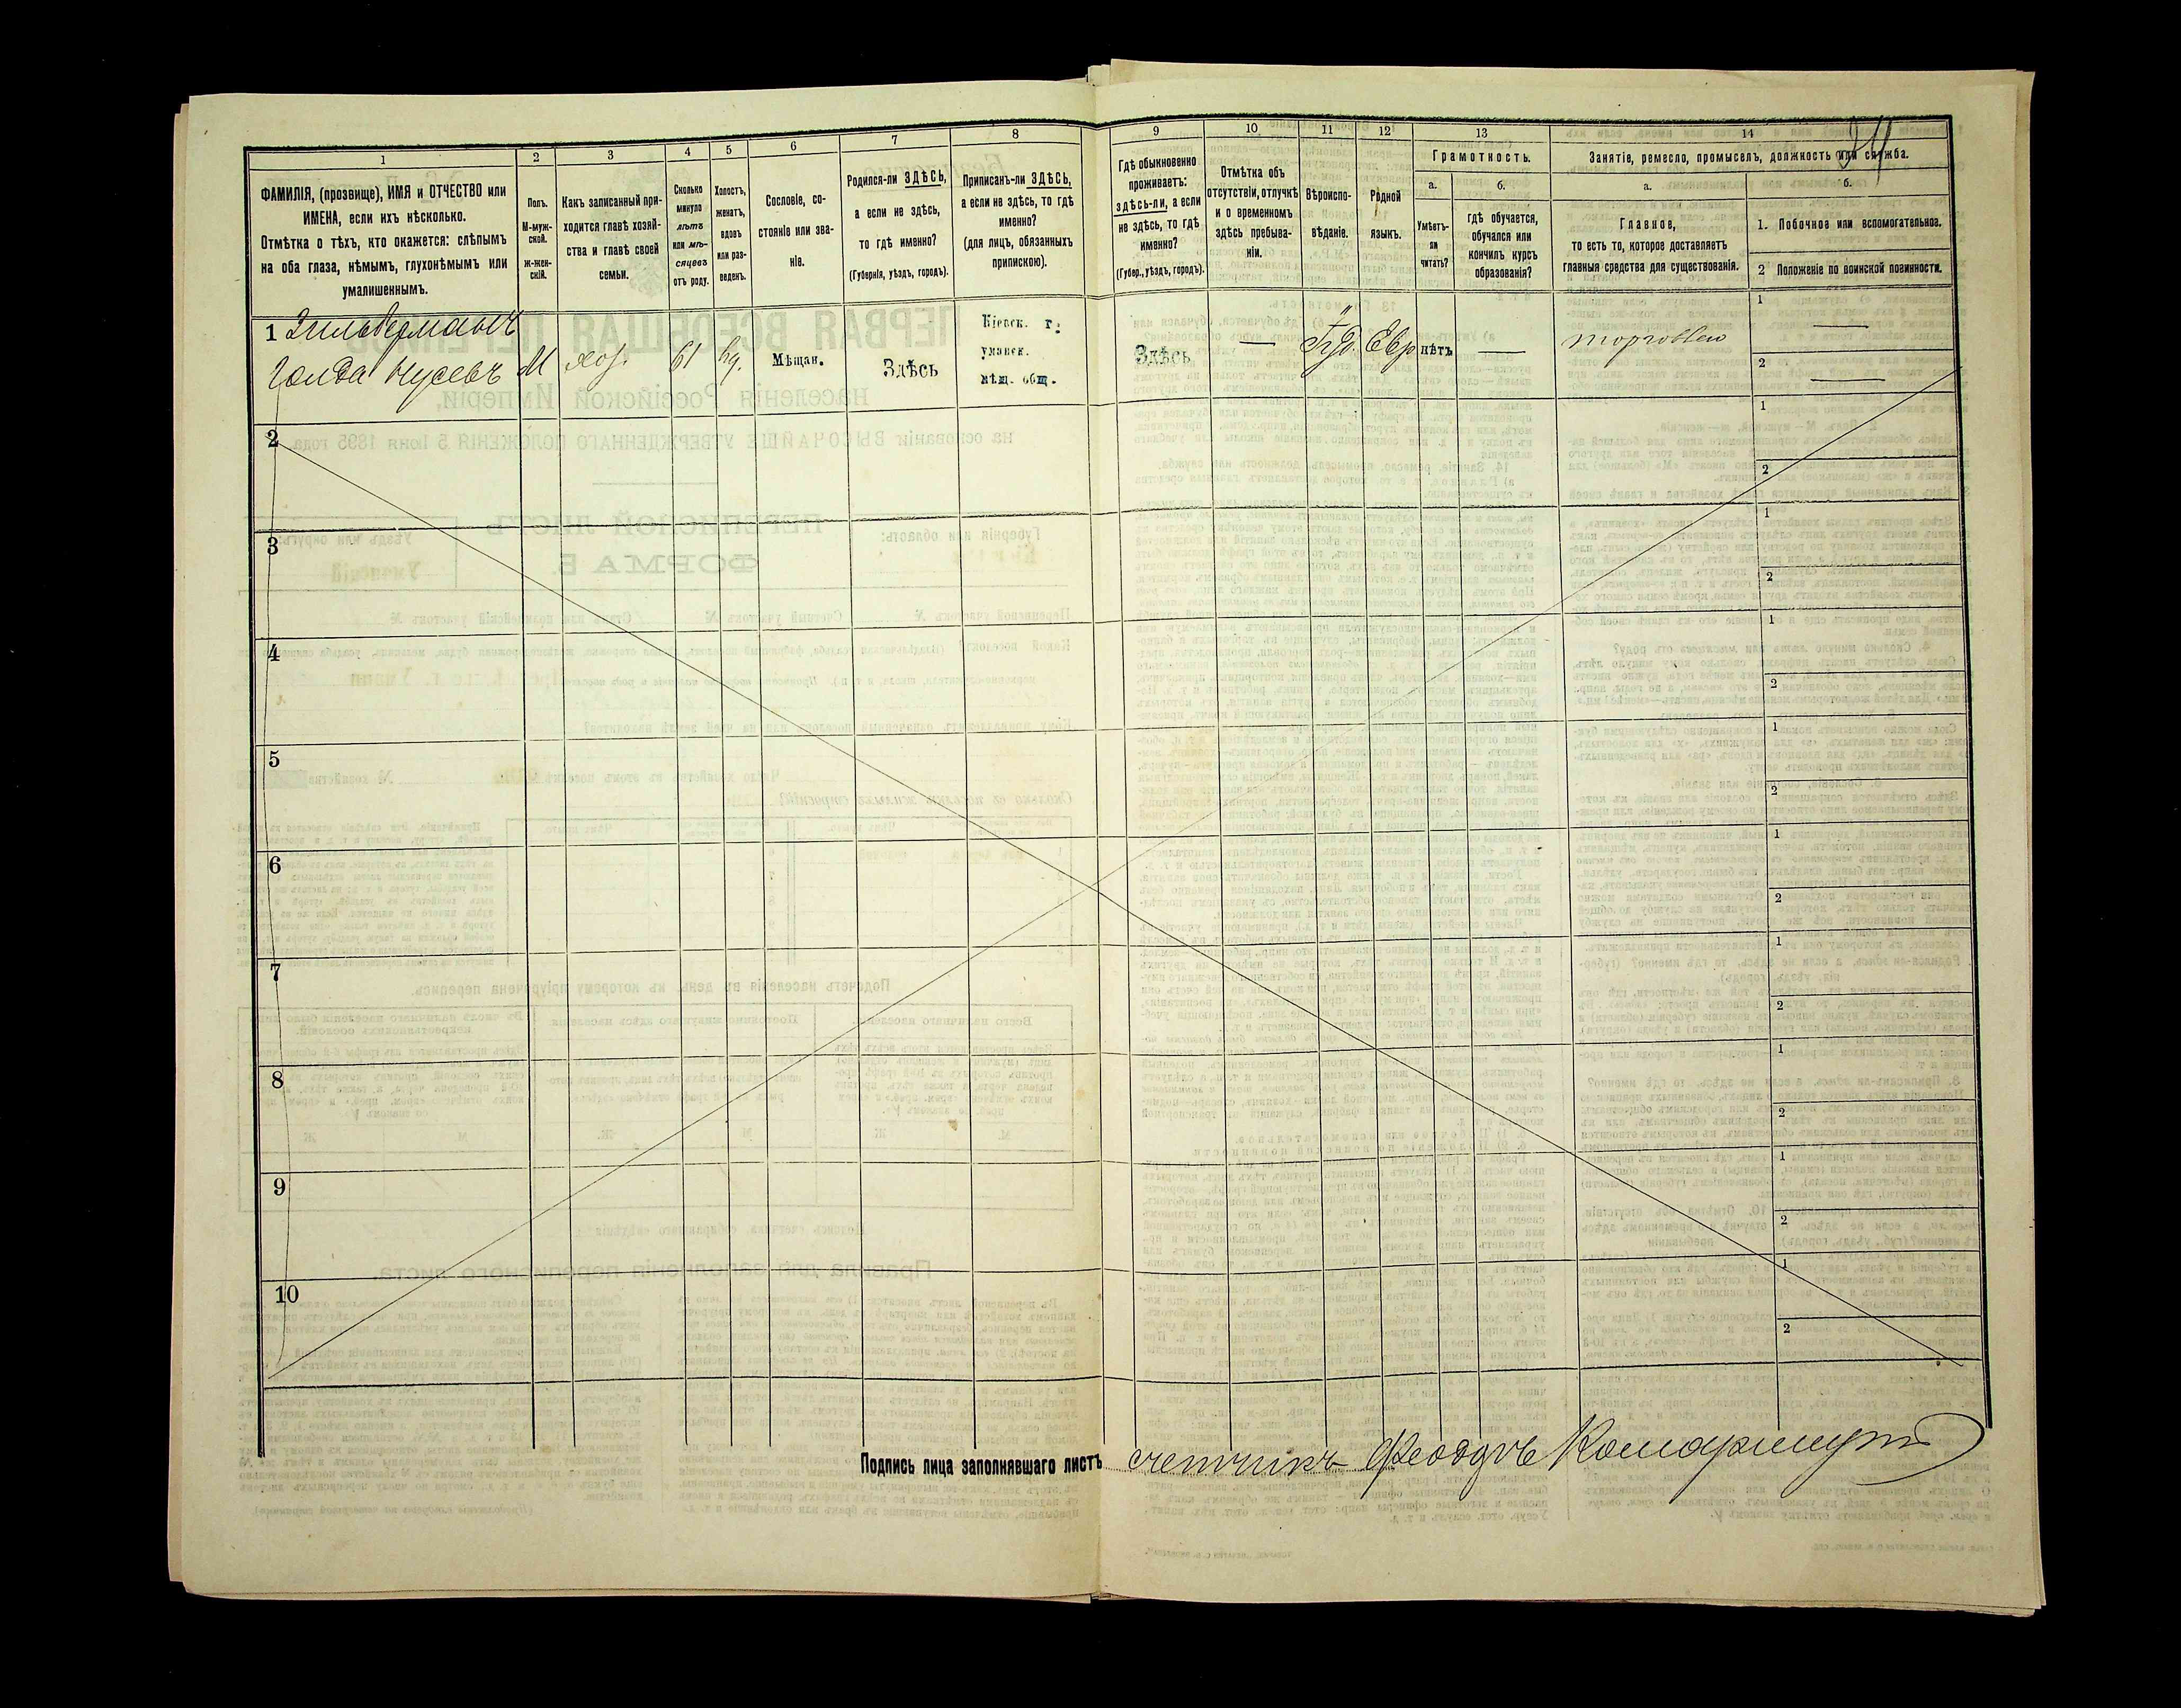 1
2
3
4
5
6
7
8
ФАМИЛІЯ, (прозвище), ИМЯ и ОТЧЕСТВО или
ИМЕНА, если ихъ нѣсколько.
Отмѣтка о тѣхъ, кто окажется: слѣпымъ
на оба глаза, нѣмымъ, глухонѣмымъ или
умалишеннымъ.
Полъ.
М-муж-
ской.
Ж-жен-
скій.
Какъ записанный при-
ходится главѣ хозяй-
ства и главѣ своей
семьи.
Сколько
минуло
лѣтъ
или мѣ-
сяцевъ
отъ роду.
Холостъ,
женатъ,
вдовъ
или раз-
веденъ.
Сословіе, со-
стояніе или зва-
ніе.
Родился-ли ЗДѢСЬ,
а если не здѣсь,
то гдѣ именно?
(Губернія, уѣздъ, городъ).
Приписанъ-ли ЗДѢСЬ,
а если не здѣсь, то гдѣ
именно?
(для лицъ, обязанныхъ
припискою).
9
10
11
12
13
14
Гдѣ обыкновенно
проживаетъ:
здѣсь-ли, а если
не здѣсь, то гдѣ
именно?
(Губер., уѣздъ, городъ).
Отмѣтка объ
отсутствіи, отлучкѣ
и о временномъ
здѣсь пребыва-
ніи.
Вѣроиспо-
вѣданіе.
Родной
языкъ.
Грамотность.
а.
б.
Умѣетъ-
ли
читать?
гдѣ обучается,
обучался или
кончилъ курсъ
образованія?
Занятіе, ремесло, промыселъ, должность или служба.
а.
б.
Главное,
то есть то, которое доставляетъ
главныя средства для существованія.
1. Побочное или вспомогательное.
2 Положеніе по воинской повинности.
1 Зильберманъ
Голда Нусевъ
М
хоз.
61
Мѣщан.
Здѣсь
Кіевск. г.
уманск.
мѣщ. общ.
Здѣсь
—
Іуд.
Евр
нѣтъ
—
торговлею
1
—
2
—
2
1
2
3
1
2
4
1
2
5
1
2
6
1
2
7
1
2
8
1
2
9
1
2
10
1
2
Подпись лица заполнявшаго листъ счетчикъ Феодоръ